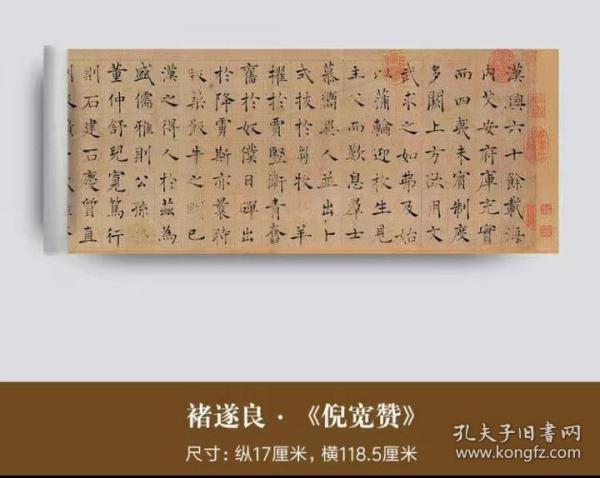 漢興六十餘載海
内艾安府庫充實
而四夷未賓制度
多闕上方欲用文
武求之如弗及始
以蒲輪迎枚生見
主父而歎息羣士
慕嚮異人並出卜
式拔於芻牧 羊
擢於賈豎衛青奮
舊於奴僕日磾出
於降虜斯亦曩時
版築飯牛之 已
漢之得人於茲為
盛儒雅則公孫
董仲舒兒寬篤行
則石建石慶質直
褚遂良·《倪宽赞》
尺寸: 纵17厘米, 横118.5厘米
孔夫子旧书网
www.kongfz.com